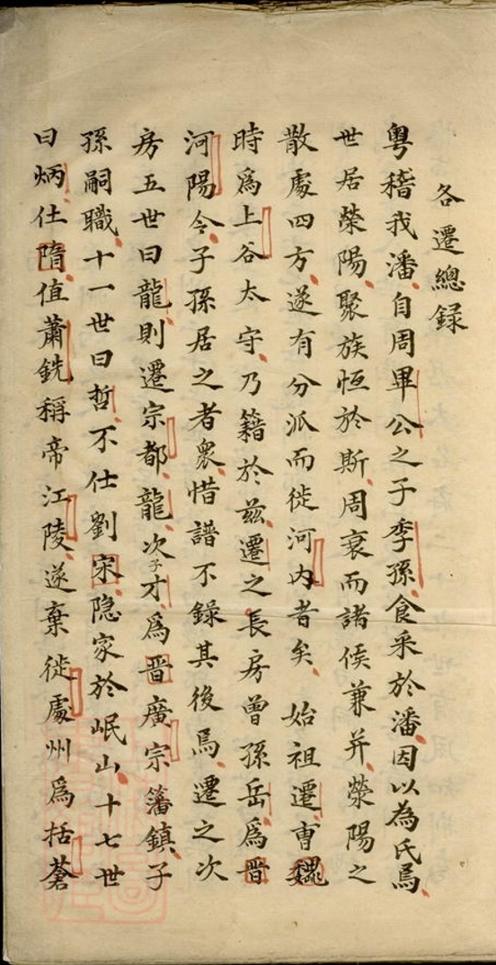 各遷總錄
粤稽我潘自周畢公之子季孫食采於潘因以為氏焉
世居榮陽聚族恆於斯周衰而諸侯兼并滎陽之
散處四方遂有分派而徙河内者矣始祖遷曺魏
時爲上谷太守乃籍於兹遷之長房曾孫岳爲晋
河陽令子孫居之者衆惜譜不錄其後焉遷之次
房五世曰龍則遷宗都龍次子才爲晋廣宗籓鎮子
孫嗣職十一世曰哲不仕劉宋隐家於岷山十七世
曰炳仕隋值蕭銑稱帝江陵遂棄徙處州爲括蒼